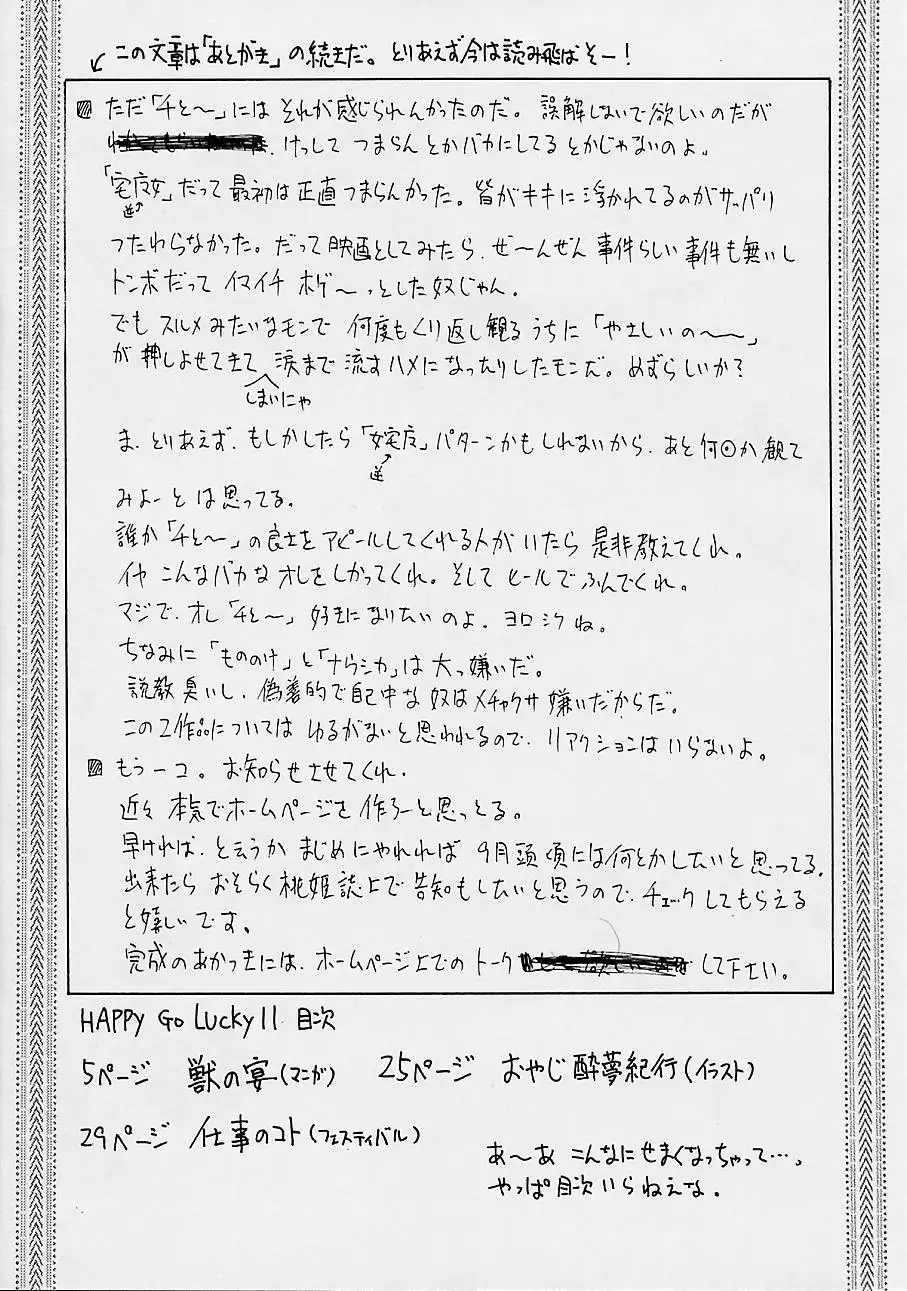 この文章は「あとがき」の続きだ。とりあえず今は読み飛ばそー！
ただ「千と〜」には それが感じられんかったのだ。誤解しないで欲しいのだが
けっして つまらんとかバカにしてるとかじゃないのよ。
「宅広女」だって最初は正直つまらんかった。皆がキキに浮かれてるのがサッパリ
逆
つたわらなかった。だって映画としてみたら、ぜ〜んぜん事件らしい事件も無いし
トンボだって イマイチ ボゲ〜っとした奴じゃん。
でも スルメみたいなモンで 何度もくり返し観るうちに「やさしいの〜〜」
が押しよせてきて 涙まで流すハメになったりしたモンだ。めずらしいか？
しまいにゃ
ま、とりあえず、もしかしたら「女宅広」パターンかもしれないから、あと何回か観て
逆
みよーとは思ってる。
誰か「千と〜」の良さをアピールしてくれる人がいたら 是非教えてくれ。
イヤ こんなバカな オレをしかってくれ。そして ヒールでふんでくれ。
マジで、オレ「千と〜」好きになりたいのよ、ヨロシクね。
ちなみに「もののけ」と「ナウシカ」は 大っ嫌いだ。
説教臭いし、偽善的で自己中な奴はメチャクサ嫌いだからだ。
この2作品については ゆるがないと思われるので、リアクションはいらないよ。
もう一コ。お知らせさせてくれ。
近々 本気でホームページを 作ろーと思っとる。
早ければ、と云うか まじめにやれれば 9月頭頃には何とかしたいと思ってる。
出来たら おそらく桃姫誌上で告知もしたいと思うので、チェックしてもらえる
と嬉しいです。
完成のあかつきには、ホームページ上でのトーク して下さい。
HAPPY Go Lucky 11 目次
5ページ 獣の宴(マンガ) 25ページ おやじ酔夢紀行(イラスト)
29ページ 仕事のコト(フェスティバル)
あ〜あ こんなにせまくなっちゃって…、
やっぱ目次いらねえな。